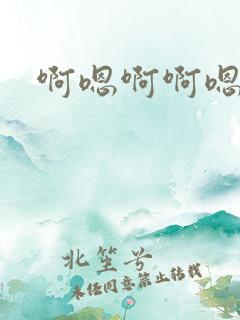 啊嗯啊啊嗯
北笙兮
未经同意禁止转载